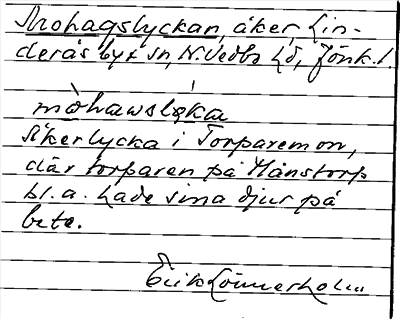 Mohagslyckan, åker, Lin-
derås by+sn, N. Vedbo hd, Jönk. l.
mòhawslẹ́ka
Åkerlycka i Torparemon,
där torparen på Månstorp
bl. a. hade sina djur på
bete.
Erik Lönnerholm